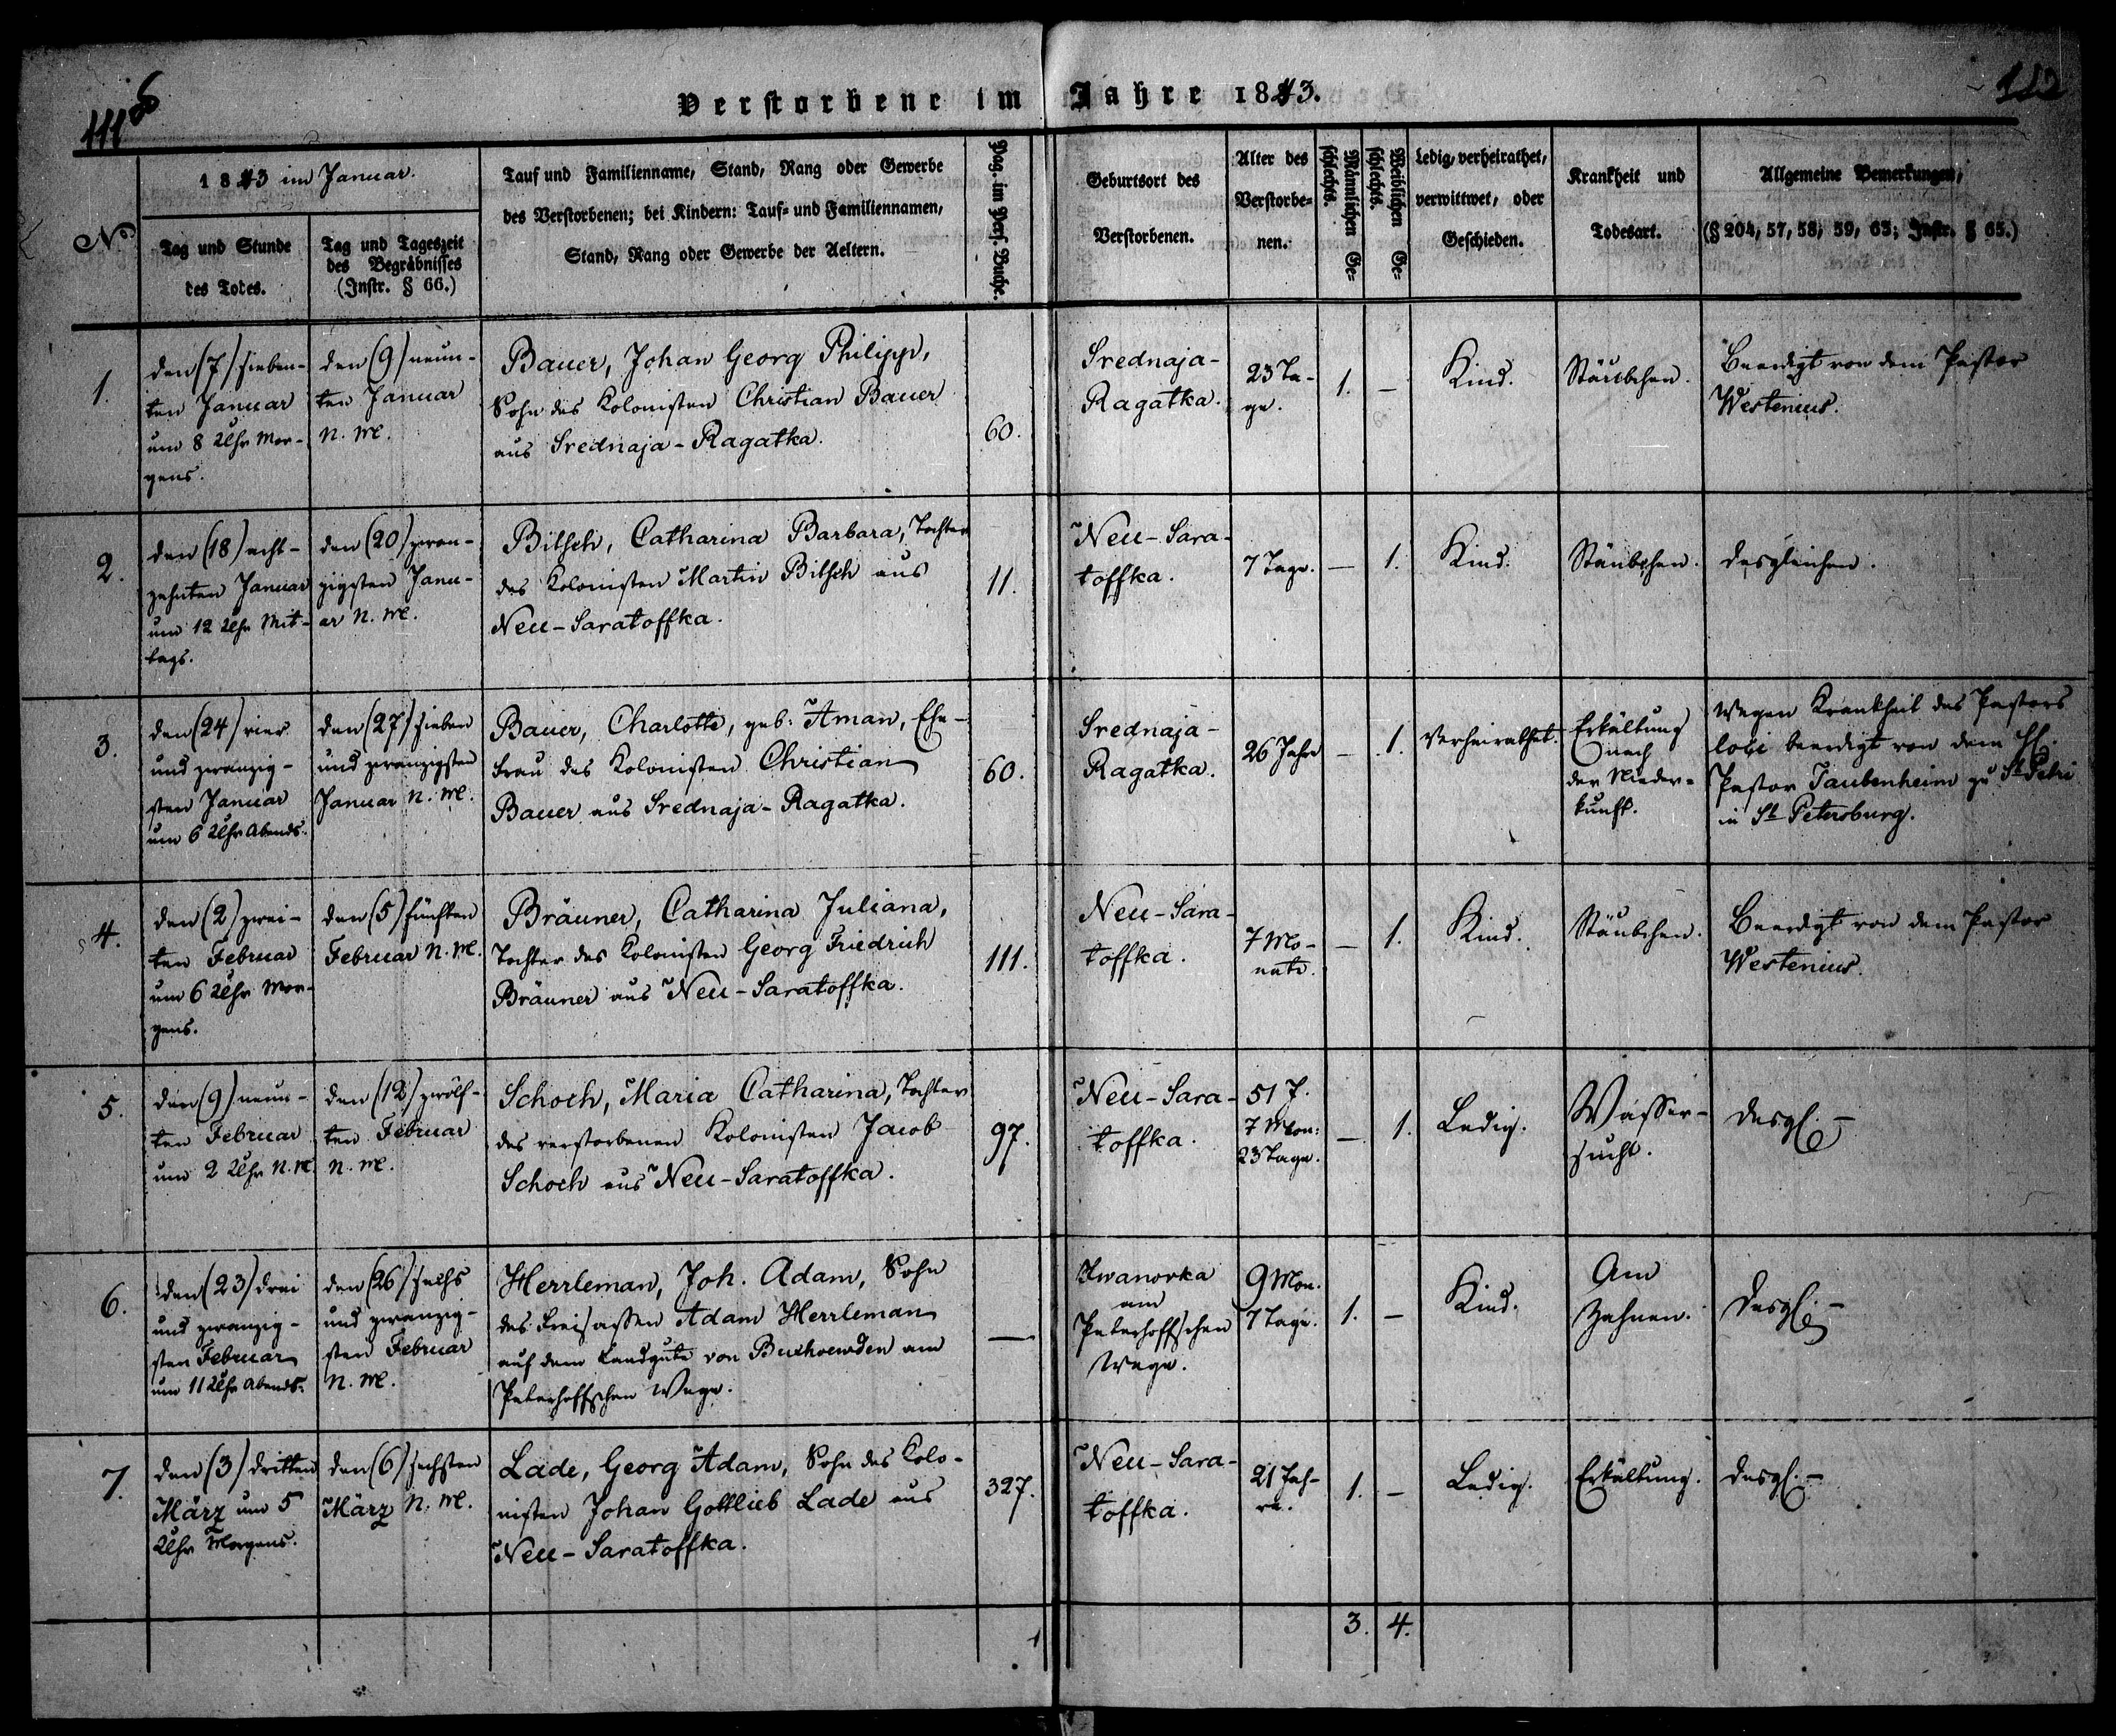 Verstorbene im Jahre 1843.
111
112
No
1843 im Januar.
Tag und Stunde
des Todes.
Tag und Tageszeit
des Begräbnisses
(Instr. § 66.)
Tauf und Familienname, Stand, Rang oder Gewerbe
des Verstorbenen; bei Kindern: Tauf- und Familiennamen,
Stand, Rang oder Gewerbe der Aeltern.
Pag. im Pers. Buche.
Geburtsort des
Verstorbenen.
Alter des
Verstorbe-
nen.
Männlichen Ge-
schlechts.
Weiblichen Ge-
schlechts.
Ledig, verheirathet,
verwittwet, oder
Geschieden.
Krankheit und
Todesart.
Allgemeine Bemerkungen,
(§ 204, 57, 58, 59, 63; Instr. § 65.)
1.
den (7) sieben-
ten Januar
um 8 Uhr Mor-
gens.
den (9) neun-
ten Januar
N. M.
Bauer, Johan Georg Philipp,
Sohn des Kolonisten Christian Bauer
aus Srednaja-Ragatka.
60.
Srednaja-
Ragatka.
23 Ta-
ge.
1.
–
Kind.
Stäubchen.
Beerdigt von dem Pastor
Westenius.
2.
den (18) acht-
zehnten Januar
um 12 Uhr Mit-
tags.
den (20) zwan-
zigsten Janu-
ar N. M.
Bitsch, Catharina Barbara, Tochter
des Kolonisten Martin Bitsch aus
Neu-Saratoffka.
11.
Neu-Sara-
toffka.
7 Tage.
–
1.
Kind.
Stäubchen.
desgleichen.
3.
den (24) vier
und zwanzig-
sten Januar
um 6 Uhr Abends.
den (27) sieben
und zwanzigsten
Januar N. M.
Bauer, Charlotte, geb: Aman, Ehe-
frau des Kolonisten Christian
Bauer aus Srednaja-Ragatka.
60.
Srednaja-
Ragatka.
26 Jahre
–
1.
Verheirathet.
Erkältung
nach
der Nieder-
kunft.
Wegen Krankheit des Pastors
loci beerdigt von dem H
Pastor Taubenheim zu St Petri
in St Petersburg.
4.
den (2) zwei-
ten Februar
um 6 Uhr Mor-
gens.
den (5) fünften
Februar N. M.
Bräuner, Catharina Juliana,
Tochter des Kolonisten Georg Friedrich
Bräuner aus Neu-Saratoffka.
111.
Neu-Sara-
toffka.
7 Mo-
nate.
–
1.
Kind.
Stäubchen.
Beerdigt von dem Pastor
Westenius.
5.
den (9) neun-
ten Februar
um 2 Uhr N. M.
den (12) zwölf-
ten Februar
N. M.
Schoch, Maria Catharina, Tochter
des verstorbenen Kolonisten Jacob
Schoch aus Neu-Saratoffka.
97.
Neu-Sara-
toffka.
51 J.
7 Mon:
23 Tage.
–
1.
Ledig.
Wasser-
sucht.
Desgl. –
6.
den (23) drei
und zwanzig-
sten Februar
um 11 Uhr Abends.
den (26) sechs
und zwanzig-
sten Februar
N. M.
Herrleman, Joh. Adam, Sohn
des Freisassen Adam Herrleman
auf dem Landgute von Buxhoewden am
Peterhoffschen Wege.
–
Iwanovka
am
Peterhoffschen
Wege.
9 Mon.
7 Tage.
1.
–
Kind.
Am
Zahnen.
Desgl. –
7.
den (3) dritten
März um 5
Uhr Morgens.
den (6) sechsten
März N. M.
Lade, Georg Adam, Sohn des Kolo-
nisten Johan Gottlieb Lade aus
Neu-Saratoffka.
327.
Neu-Sara-
toffka.
21 Jah-
re.
1.
–
Ledig.
Erkältung.
Desgl. –
3.
4.